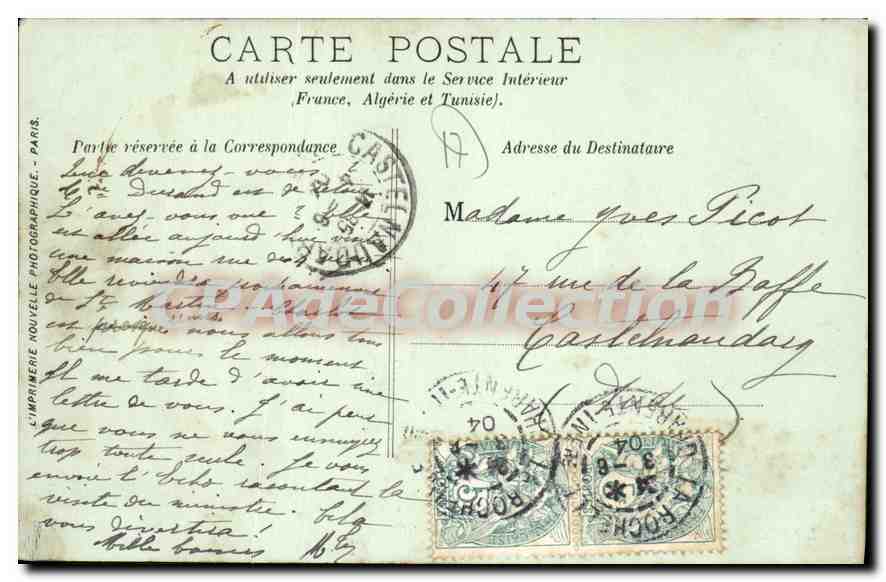 CARTE POSTALE
A utiliser seulement dans le Service Intérieur
(France, Algérie et Tunisie).
Partie réservée à la Correspondance
Adresse du Destinataire
L'IMPRIMERIE NOUVELLE PHOTOGRAPHIQUE. - PARIS.
17
CASTELNAUDARY
Que devenez-vous ?
Durand est de retour
L'avez-vous vue ? Elle
est allée aujourd'hui
une maison rue de
Elle reviendra
de St
est nous allons tous
bien pour le moment
Il me tarde d'avoir une
lettre de vous. J'ai peur
que vous ne vous ennuyez
trop toute seule. Je vous
envoie l'Echo racontant la
visite du ministre.
vous divertira !
Mille baisers
Madame Yves Picot
47 rue de la Baffe
Castelnaudary
Aude
CPAgeCollection
LA ROCHE
CHARENTE-INF
04
LA ROCHE
CHARENTE-INF
3 -8
04